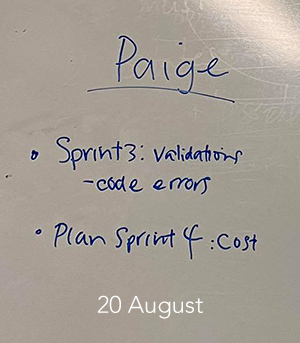 Paige
• Sprint3: Validations
-code errors
• Plan Sprint 4 : Cost
20 August